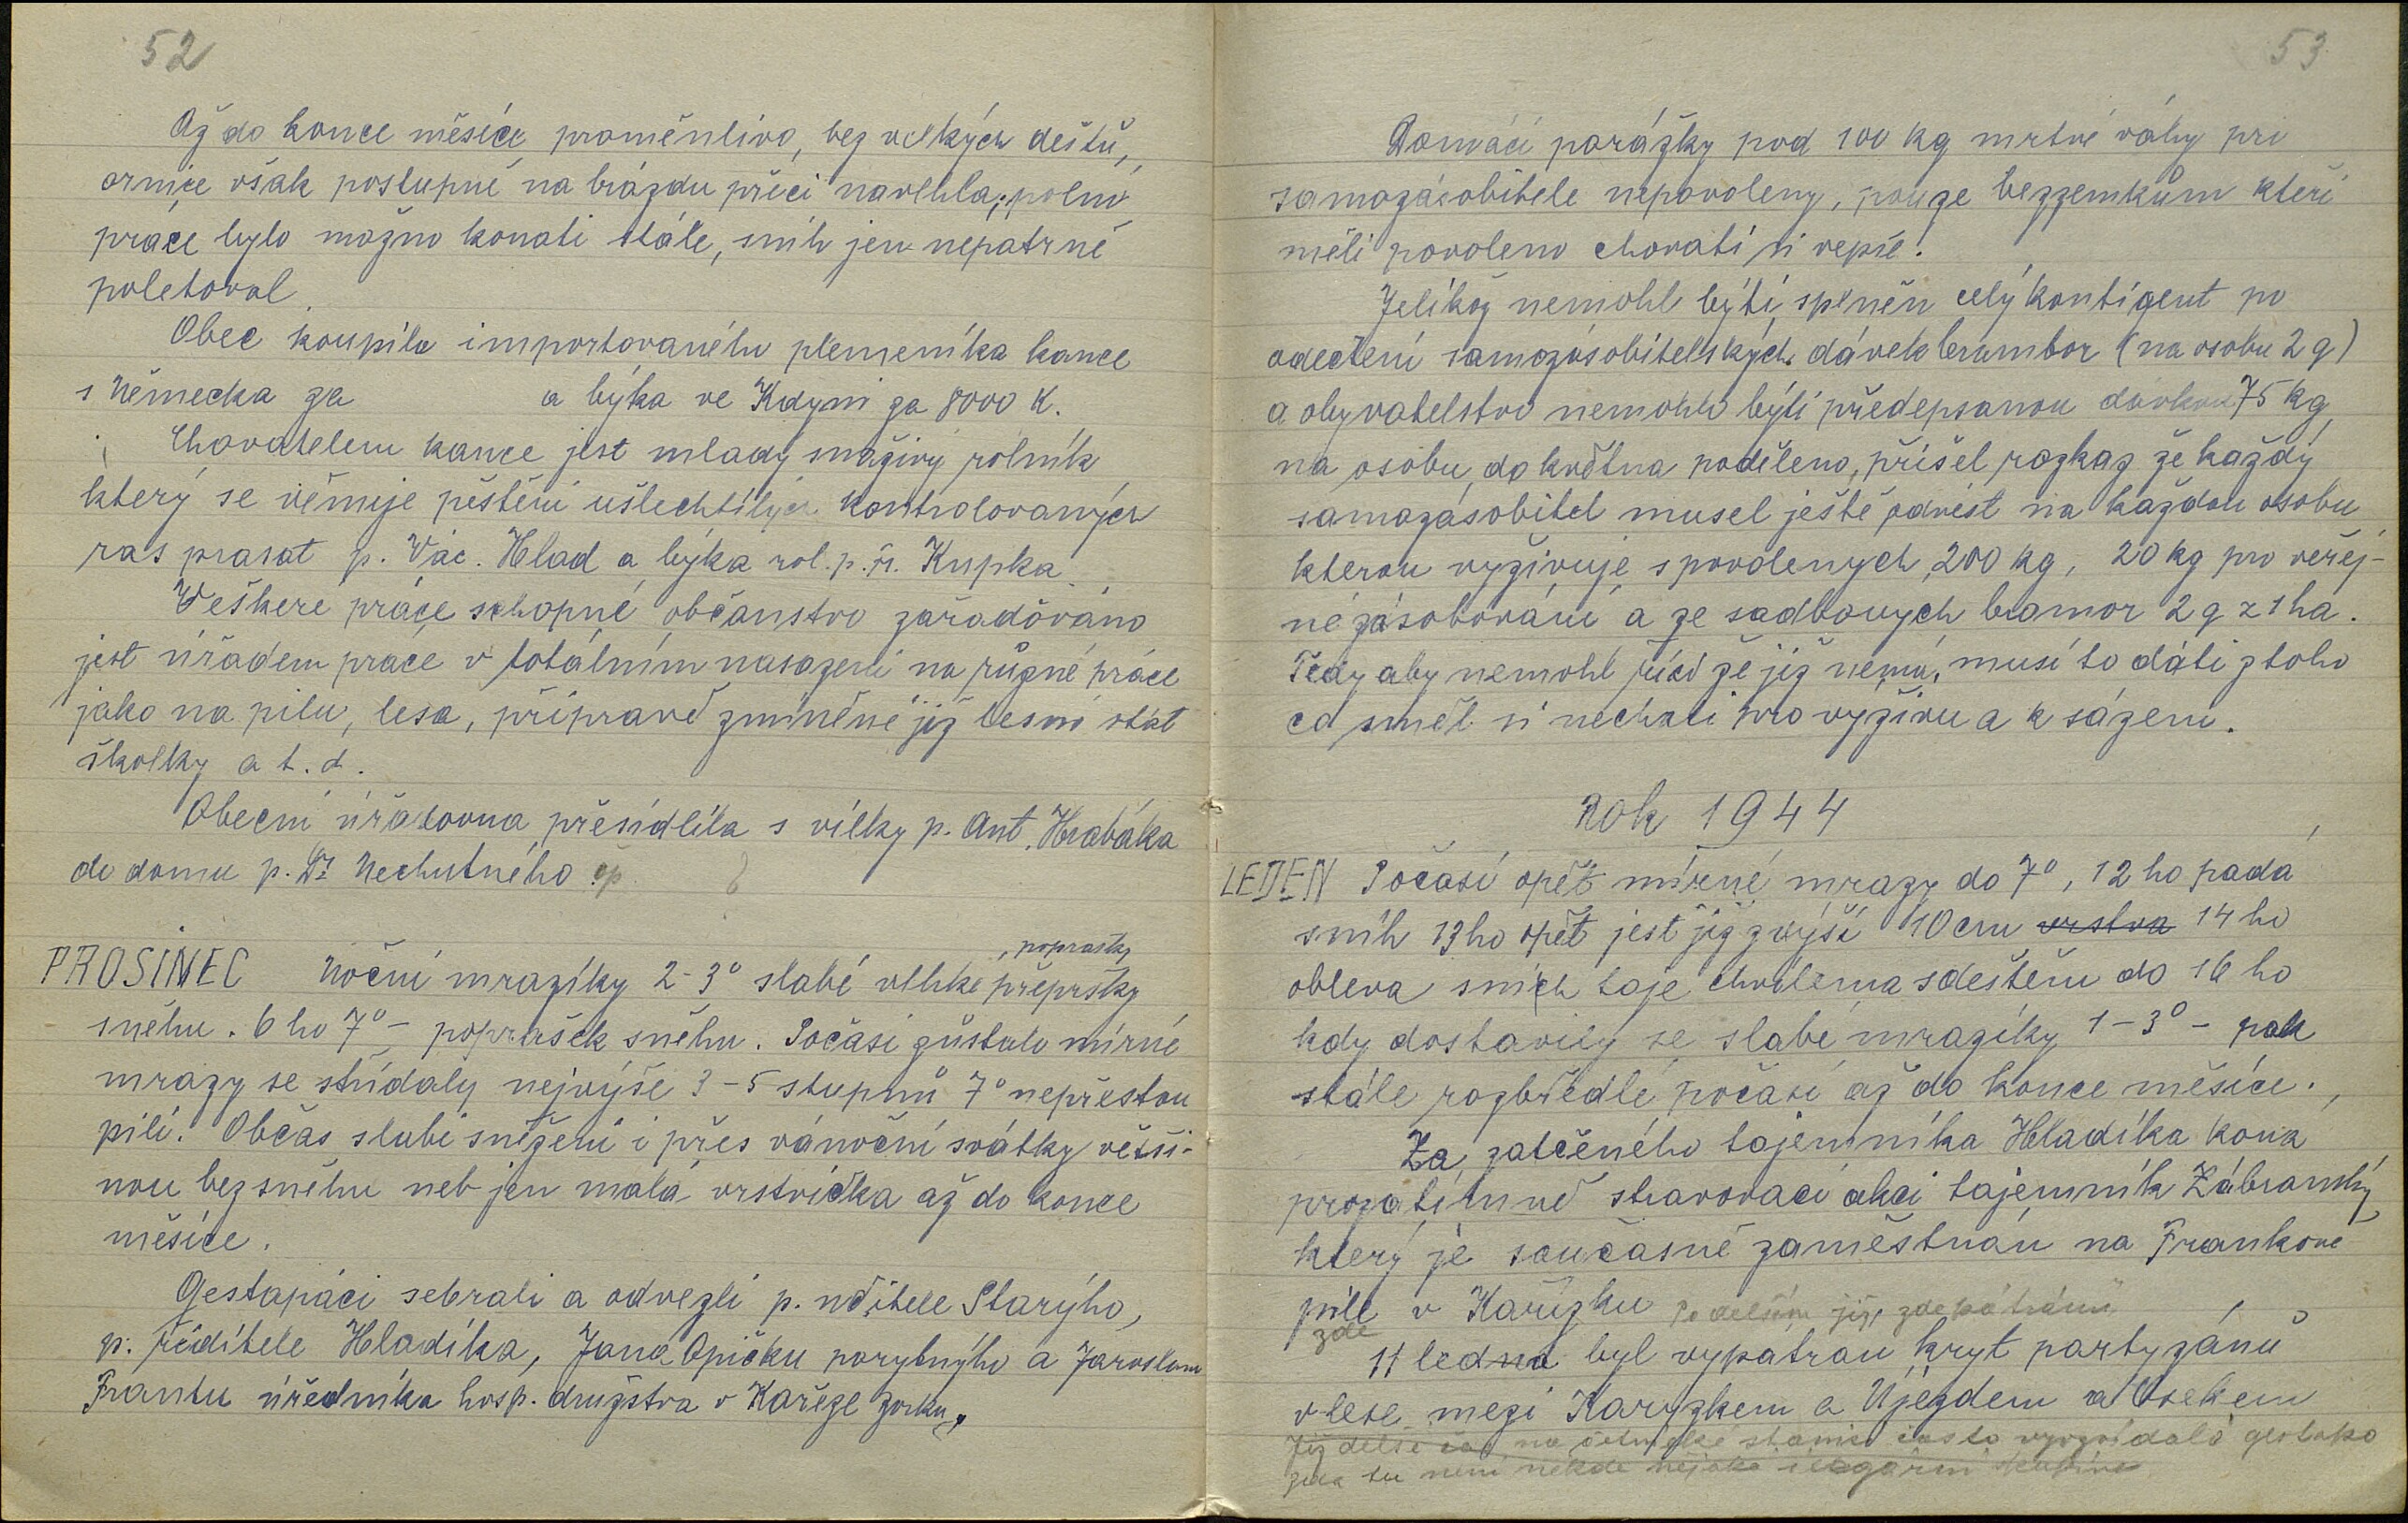 52
Až do konce měsíce proměnlivo, bez velkých dešťů,
ornice však postupně na brázdu přeci navlhla; polní
práce bylo možno konati stále, sníh jen nepatrně
poletoval.
Obec koupila importovaného plemeníka kance
s Německa za a býka ve Kdyni za 8000 K.
Chovatelem kance jest mladý snaživý rolník
který se věnuje pěstění ušlechtilých kontrolovaných
ras prasat p. Vác. Hlad a býka rol. p. Fr. Kupka.
Veškeré práce schopné občanstvo zařaďováno
jest úřadem práce v totálním nasazení na různé práce
jako na pilu, lesa, přípravě zmíněné již lesní stát
školky a t. d.
Obecní úřadovna přesídlila s vilky p. Ant. Hrabáka
do domu p. Dr Nechutného čp.
, poprašky
PROSINEC Noční mrazíky 2-3° slabé vlhké přepršky
sněhu. 6 ho 7°- poprašek sněhu. Počasí zůstalo mírné
mrazy se střídaly nejvýše 3-5 stupňů 7° nepřestou
pili. Občas slabé sněžení i přes vánoční svátky větši-
nou bez sněhu neb jen malá vrstvička až do konce
měsíce.
Gestapáci sebrali a odvezli p. učitele Starýho,
p. řídítele Hladíka, Jana Opičku porybnýho a Jaroslava
Frantu úředníka hosp. družstva v Kařeze
53
Domácí porážky pod 100 kg mrtvé váhy pri
samozásobitele nepovoleny, pouze bezzemkům kteří
měli povoleno chovati si vepře.
Jelikož nemohl býti splněn celý kontigent po
odečtení samozásobitelských dávek brambor (na osobu 2 q)
a obyvatelstvo nemohlo býti předepsanou dávkou 75 kg
na osobu do května poděleno, přišel rozkaz že každý
samozásobitel musel ještě odvést na každou osobu
kterou vyživuje s povolených 200 kg, 20 kg pro veřej-
né zásobování a ze sadbových bramor 2 q z 1 ha.
Tedy aby nemohl říci že již nemá, musí to dáti z toho
co směl si nechati pro vyživu a k sázení.
Rok 1944
LEDEN Počasí opět mírné mrazy do 7°, 12 ho padá
sníh 13 ho opět jest již zvýší 10 cm vrstva 14 ho
obleva sních taje chvilema s deštěm do 16 ho
kdy dostavily se slabé mrazíky 1-3°- pak
stále rozbředlé počasí až do konce měsíce.
Za zatčeného tajemníka Hladíka koná
prozatímně stravovací akci tajemník Zábranský
který je současně zaměstnán na Frankově
pile v Kařízku Po delším již zde pátrání
zde
11 ledna byl vypátrán kryt partyzánů
v lese mezi Karyzkem a Újezdem a Osekem
Již delší čas na četnické stanici často vyzvídalo gestapo
zda tu není někde nějaká ilegární skupina